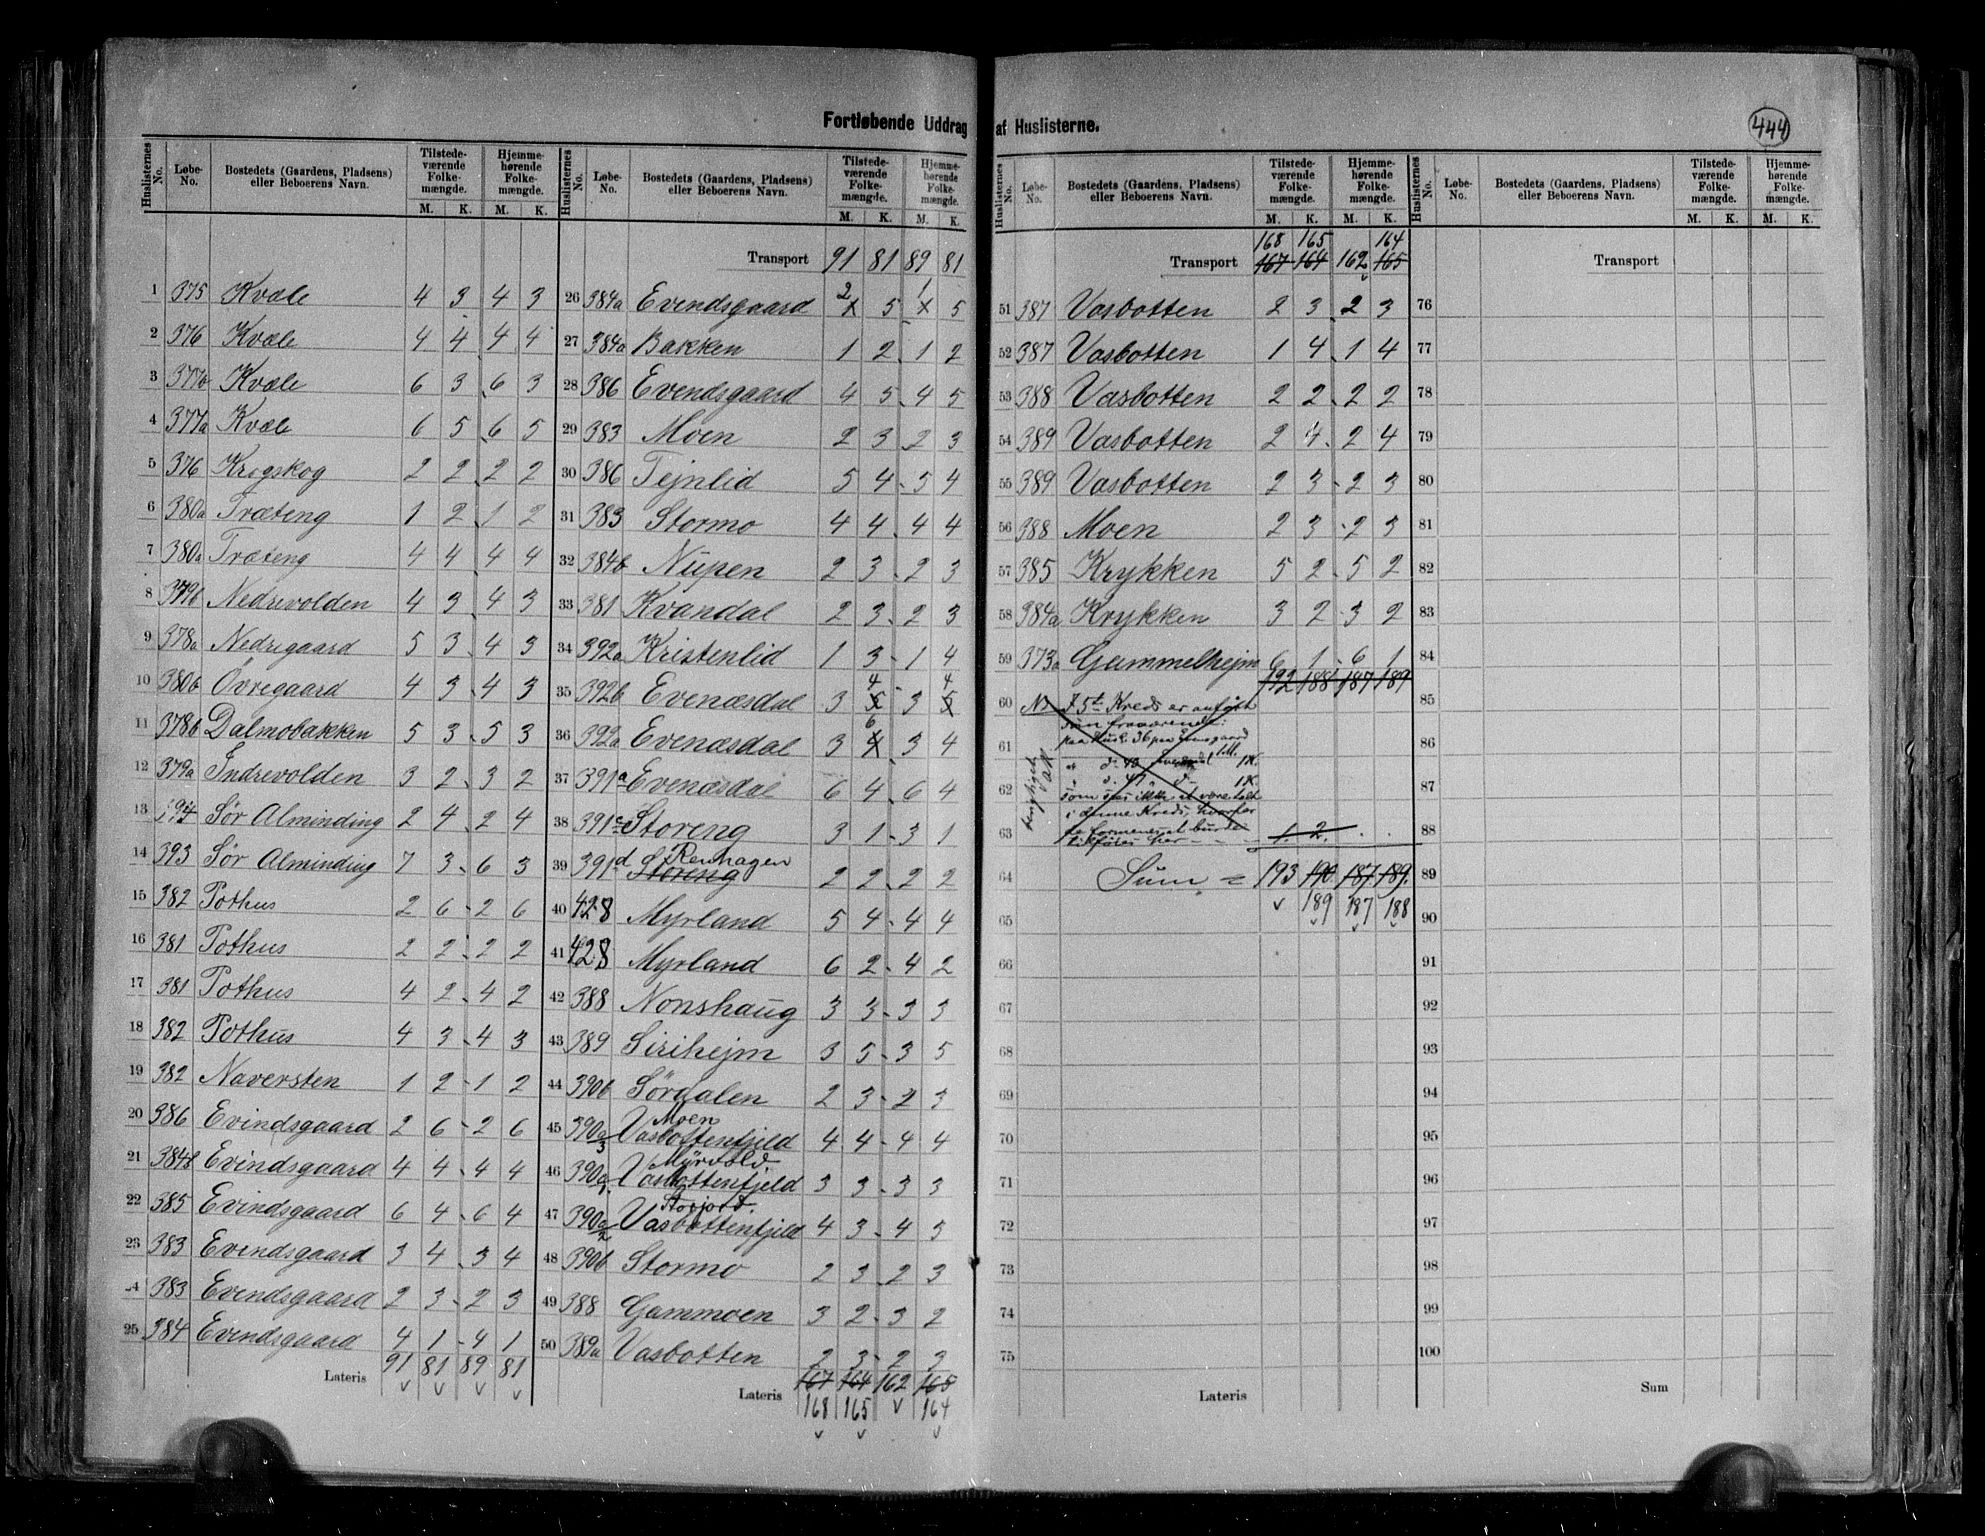 Fortløbende Uddrag af Huslisterne.
444
Huslisternes No. Løbe-No. Bostedets (Gaardens, Pladsens) eller Beboerens Navn. Tilstedeværende Folkemængde. M. K. Hjemmehørende Folkemængde. M. K.
1 375 Kvæle 4 3 4 3
2 376 Kvæle 4 4 4 4
3 377b Kvæle 6 3 6 3
4 377a Kvæle 6 5 6 5
5 376 Krogskog 2 2 2 2
6 380a Træteng 1 2 1 2
7 380a Træteng 4 4 4 4
8 379b Nedrevolden 4 3 4 3
9 378a Nedregaard 5 3 4 3
10 380b Övregaard 4 3 4 3
11 378b Dalmobakken 5 3 5 3
12 379a Indrevolden 3 2 3 2
13 394 Sör Alminding 2 4 2 4
14 393 Sör Alminding 7 3 6 3
15 382 Pothus 2 6 2 6
16 381 Pothus 2 2 2 2
17 381 Pothus 4 2 4 2
18 382 Pothus 4 3 4 3
19 382 Naversten 1 2 1 2
20 386 Evindsgaard 2 6 2 6
21 384b Evindsgaard 4 4 4 4
22 385 Evindsgaard 6 4 6 4
23 383 Evindsgaard 3 4 3 4
24 383 Evendsgaard 2 3 2 3
25 384 Evendsgaard 4 1 4 1
Lateris 91 81 89 81
Huslisternes No. Løbe-No. Bostedets (Gaardens, Pladsens) eller Beboerens Navn. Tilstedeværende Folkemængde. M. K. Hjemmehørende Folkemængde. M. K.
Transport 91 81 89 81
26 384a Evendsgaard 2 5 1 5
27 384a Bakken 1 2 1 2
28 386 Evendsgaard 4 5 4 5
29 383 Moen 2 3 2 3
30 386 Tejnlid 5 4 5 4
31 383 Stormo 4 4 4 4
32 384b Nupen 2 3 2 3
33 381 Kvandal 2 3 2 3
34 392a Kristenlid 1 3 1 4
35 392b Evenæsdal 3 5 4 3 5 4
36 392a Evenæsdal 3 4 6 3 4
37 391a Evenæsdal 6 4 6 4
38 391c Storeng 3 1 3 1
39 391d Storeng Renhagen 2 2 2 2
40 428 Myrland 5 4 4 4
41 428 Myrland 6 2 4 2
42 388 Nonshaug 3 3 3 3
43 389 Sirihejm 3 5 3 5
44 390b Sördalen 2 3 2 3
45 390a3 Vasbottenfjeld Moen 4 4 4 4
46 390a1 Vasbottenfjeld Myrvold. 3 3 3 3
47 390a2 Vasbottenfjeld Storjord. 4 3 4 3
48 390b Stormo 2 3 2 3
49 388 Gammoen 3 2 3 2
50 389a Vasbotten 2 3 2 3
Lateris 167 164 162 165
168 165 164
Huslisternes No. Løbe-No. Bostedets (Gaardens, Pladsens) eller Beboerens Navn. Tilstedeværende Folkemængde. M. K. Hjemmehørende Folkemængde. M. K.
168 165 164
Transport 167 164 162 165
51 387 Vasbotten 2 3 2 3
52 387 Vasbotten 1 4 1 4
53 388 Vasbotten 2 2 2 2
54 389 Vasbotten 2 4 2 4
55 389 Vasbotten 2 3 2 3
56 388 Moen 2 3 2 3
57 385 Krykken 5 2 5 2
58 384a Krykken 3 2 3 2
59 373a Gammelhejm 6 1 6 1
192 188 187 189
60 I 5t Kreds er anført
som fraværende:
61 paa Husl. 36
1K.
62 1K.
som ses ikke at være talt
i denne Kreds, hvorfor
63 de formenes at burde
tilføies her 1 2
64 Sum = 193 190 187 189
189 187 188
65
66
67
68
69
70
71
72
73
74
75
Lateris
Huslisternes No. Løbe-No. Bostedets (Gaardens, Pladsens) eller Beboerens Navn. Tilstedeværende Folkemængde. M. K. Hjemmehørende Folkemængde. M. K.
Transport
76
77
78
79
80
81
82
83
84
85
86
87
88
89
90
91
92
93
94
95
96
97
98
99
100
Sum